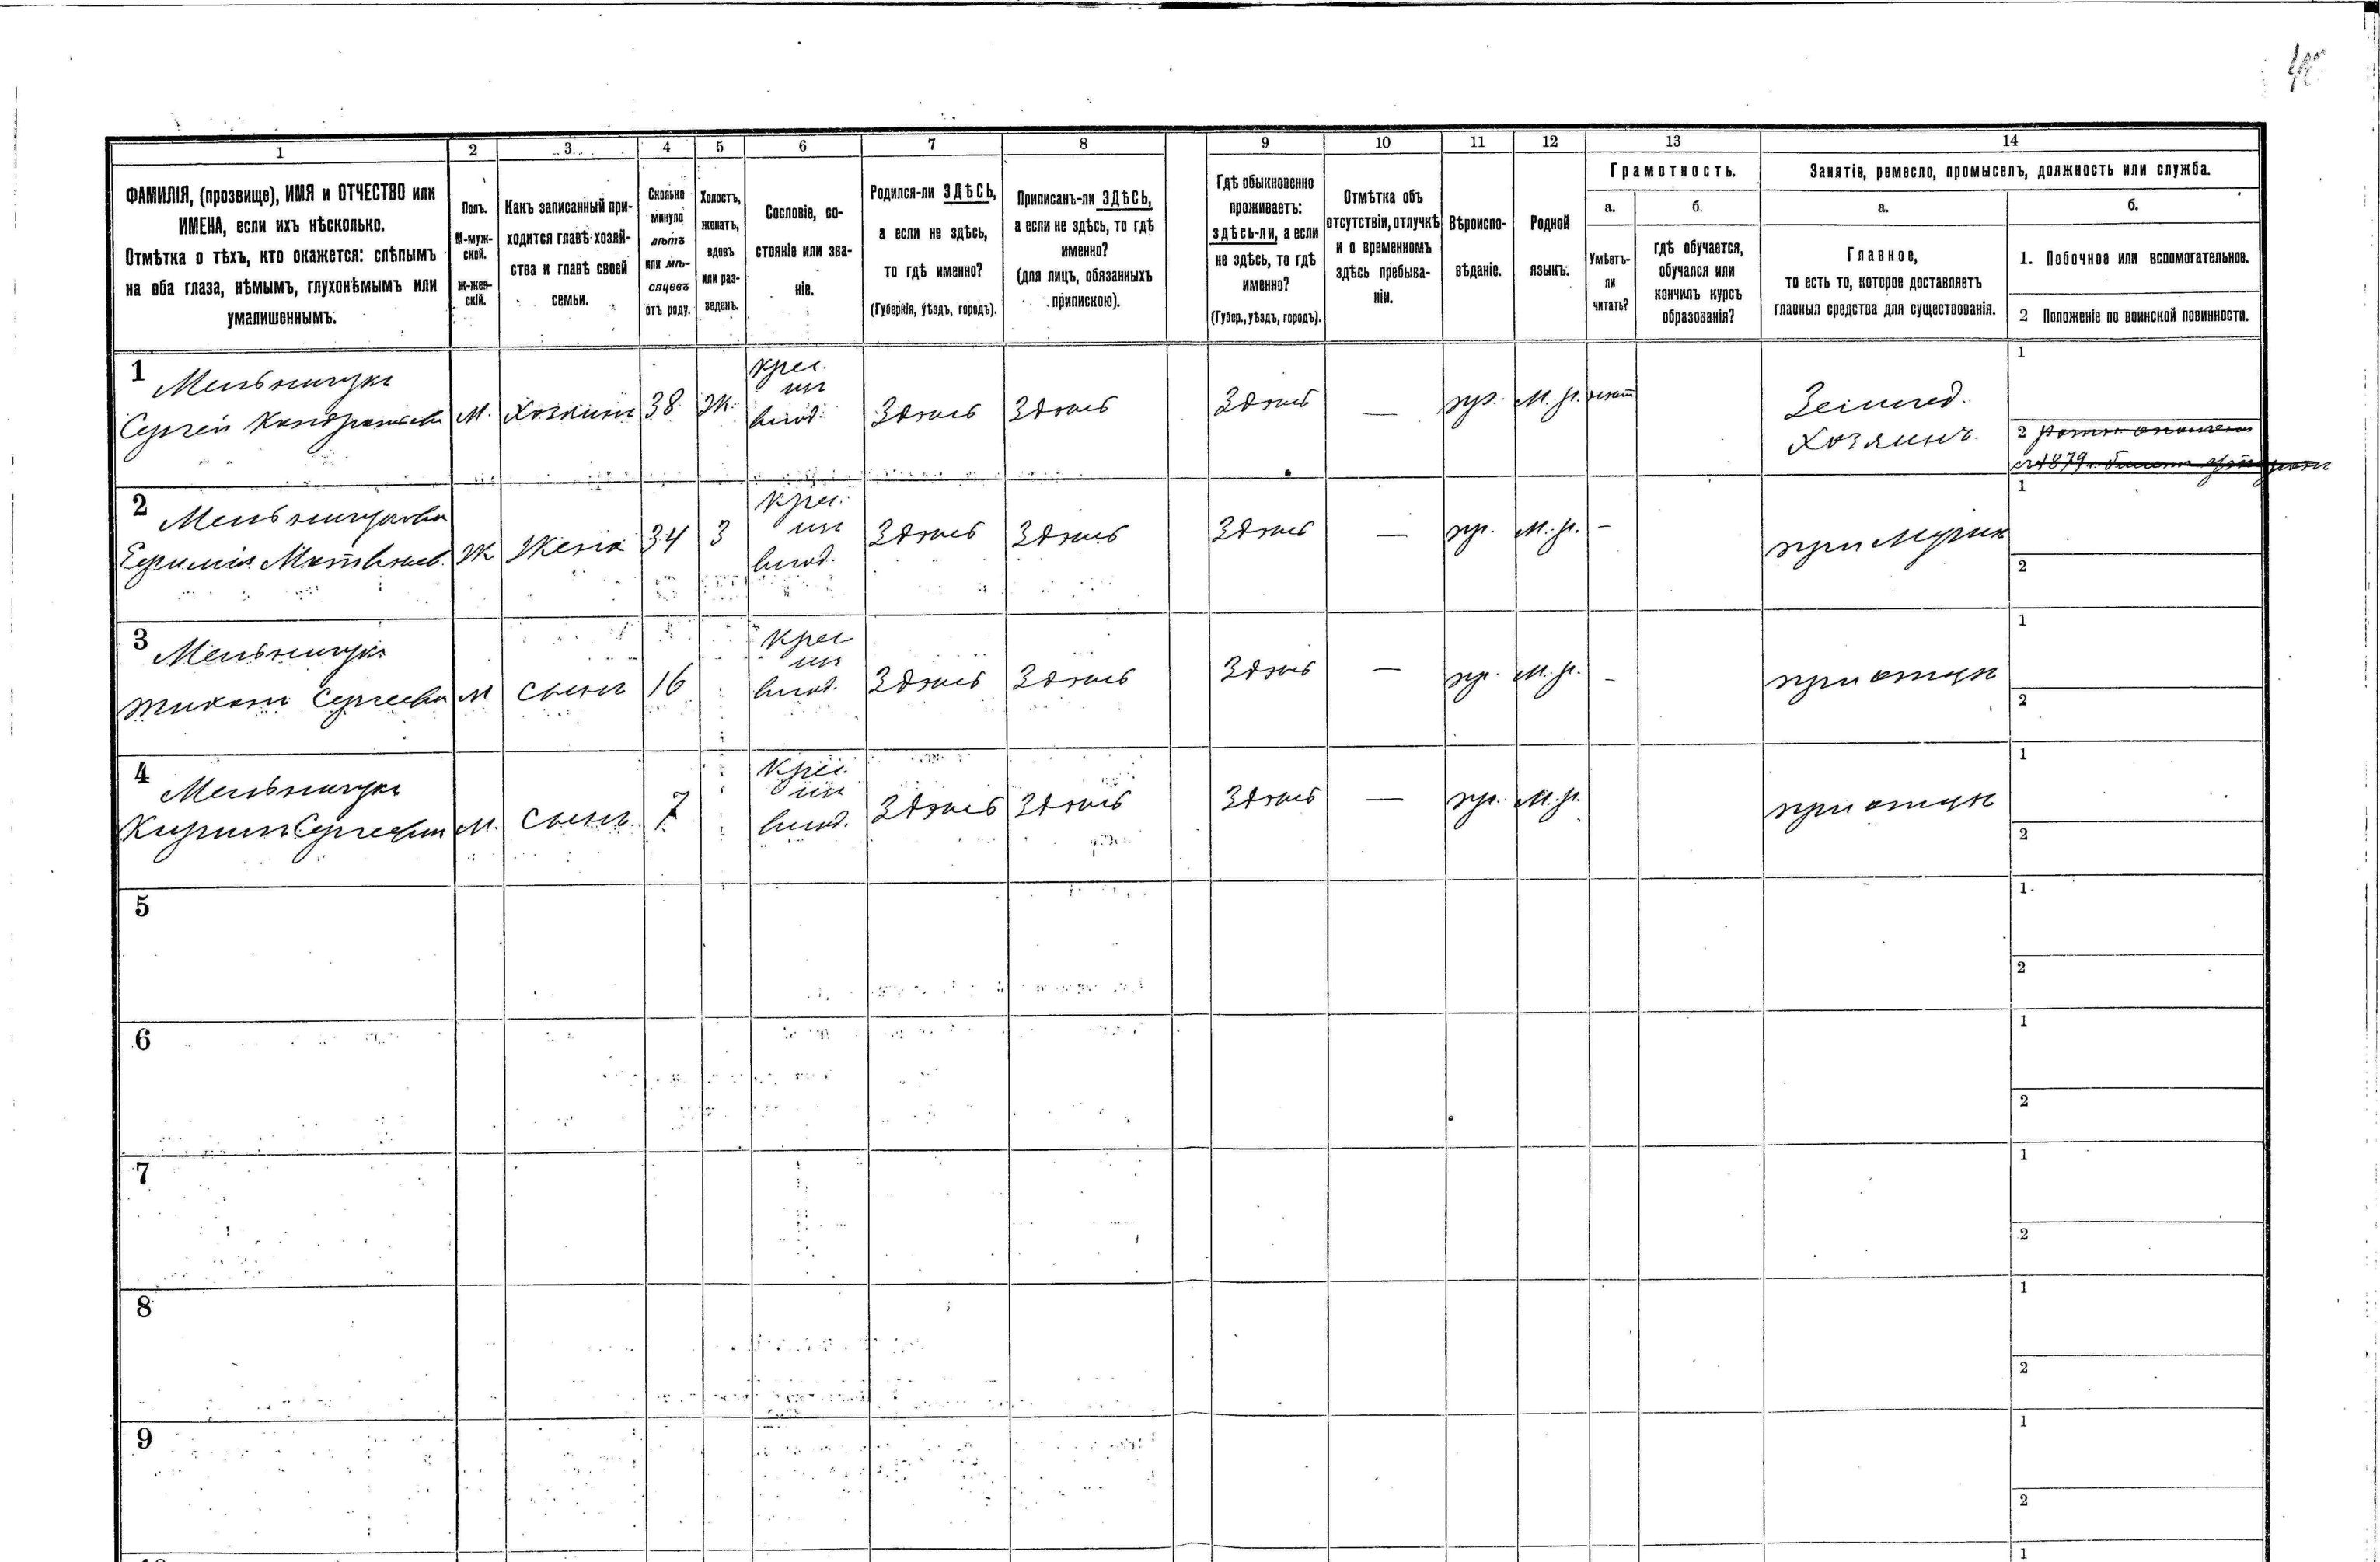 1 2 3 4 5 6 7 8 9 10 11 12 13 14
ФАМИЛІЯ, (прозвище), ИМЯ и ОТЧЕСТВО или
ИМЕНА, если ихъ нѣсколько.
Отмѣтка о тѣхъ, кто окажется: слѣпымъ
на оба глаза, нѣмымъ, глухонѣмымъ или
умалишеннымъ.
Полъ.
М-муж-
ской.
Ж-жен-
скій.
Какъ записанный при-
ходится главѣ хозяй-
ства и главѣ своей
семьи.
Сколько
минуло
лѣтъ
или мѣ-
сяцевъ
отъ роду.
Холостъ,
женатъ,
вдовъ
или раз-
веденъ.
Сословіе, со-
стояніе или зва-
ніе.
Родился-ли ЗДѢСЬ,
а если не здѣсь,
то гдѣ именно?
(Губернія, уѣздъ, городъ).
Приписанъ-ли ЗДѢСЬ,
а если не здѣсь, то гдѣ
именно?
(для лицъ, обязанныхъ
припискою).
Гдѣ обыкновенно
проживаетъ:
здѣсь-ли, а если
не здѣсь, то гдѣ
именно?
(Губер., уѣздъ, городъ).
Отмѣтка объ
отсутствіи, отлучкѣ
и о временномъ
здѣсь пребыва-
ніи.
Вѣроиспо-
вѣданіе.
Родной
языкъ.
Грамотность.
а.
Умѣетъ-
ли
читать?
б.
гдѣ обучается,
обучался или
кончилъ курсъ
образованія?
Занятіе, ремесло, промыселъ, должность или служба.
а.
Главное,
то есть то, которое доставляетъ
главныя средства для существованія.
б.
1. Побочное или вспомогательное.
2 Положеніе по воинской повинности.
1 Мельничукъ
Сергѣй М. Хозяинъ 38 Ж. Крес. Здѣсь Здѣсь Здѣсь — пр. М. р.
Землед.
Хозяинъ.
1
2
1879
2 Мельничукова
Матвѣев. Ж Жена 34 З Крес. Здѣсь Здѣсь Здѣсь — пр. М. р. —
при мужѣ
1
2
3 Мельничукъ
Сергѣевъ М сынъ 16 Крес Здѣсь Здѣсь Здѣсь — пр. М. р. —
при отцѣ
1
2
4 Мельничукъ
М. Сынъ 7 Крес. Здѣсь Здѣсь Здѣсь — пр. М. р.
при отцѣ
1
2
5
1
2
6
1
2
7
1
2
8
1
2
9
1
2
1